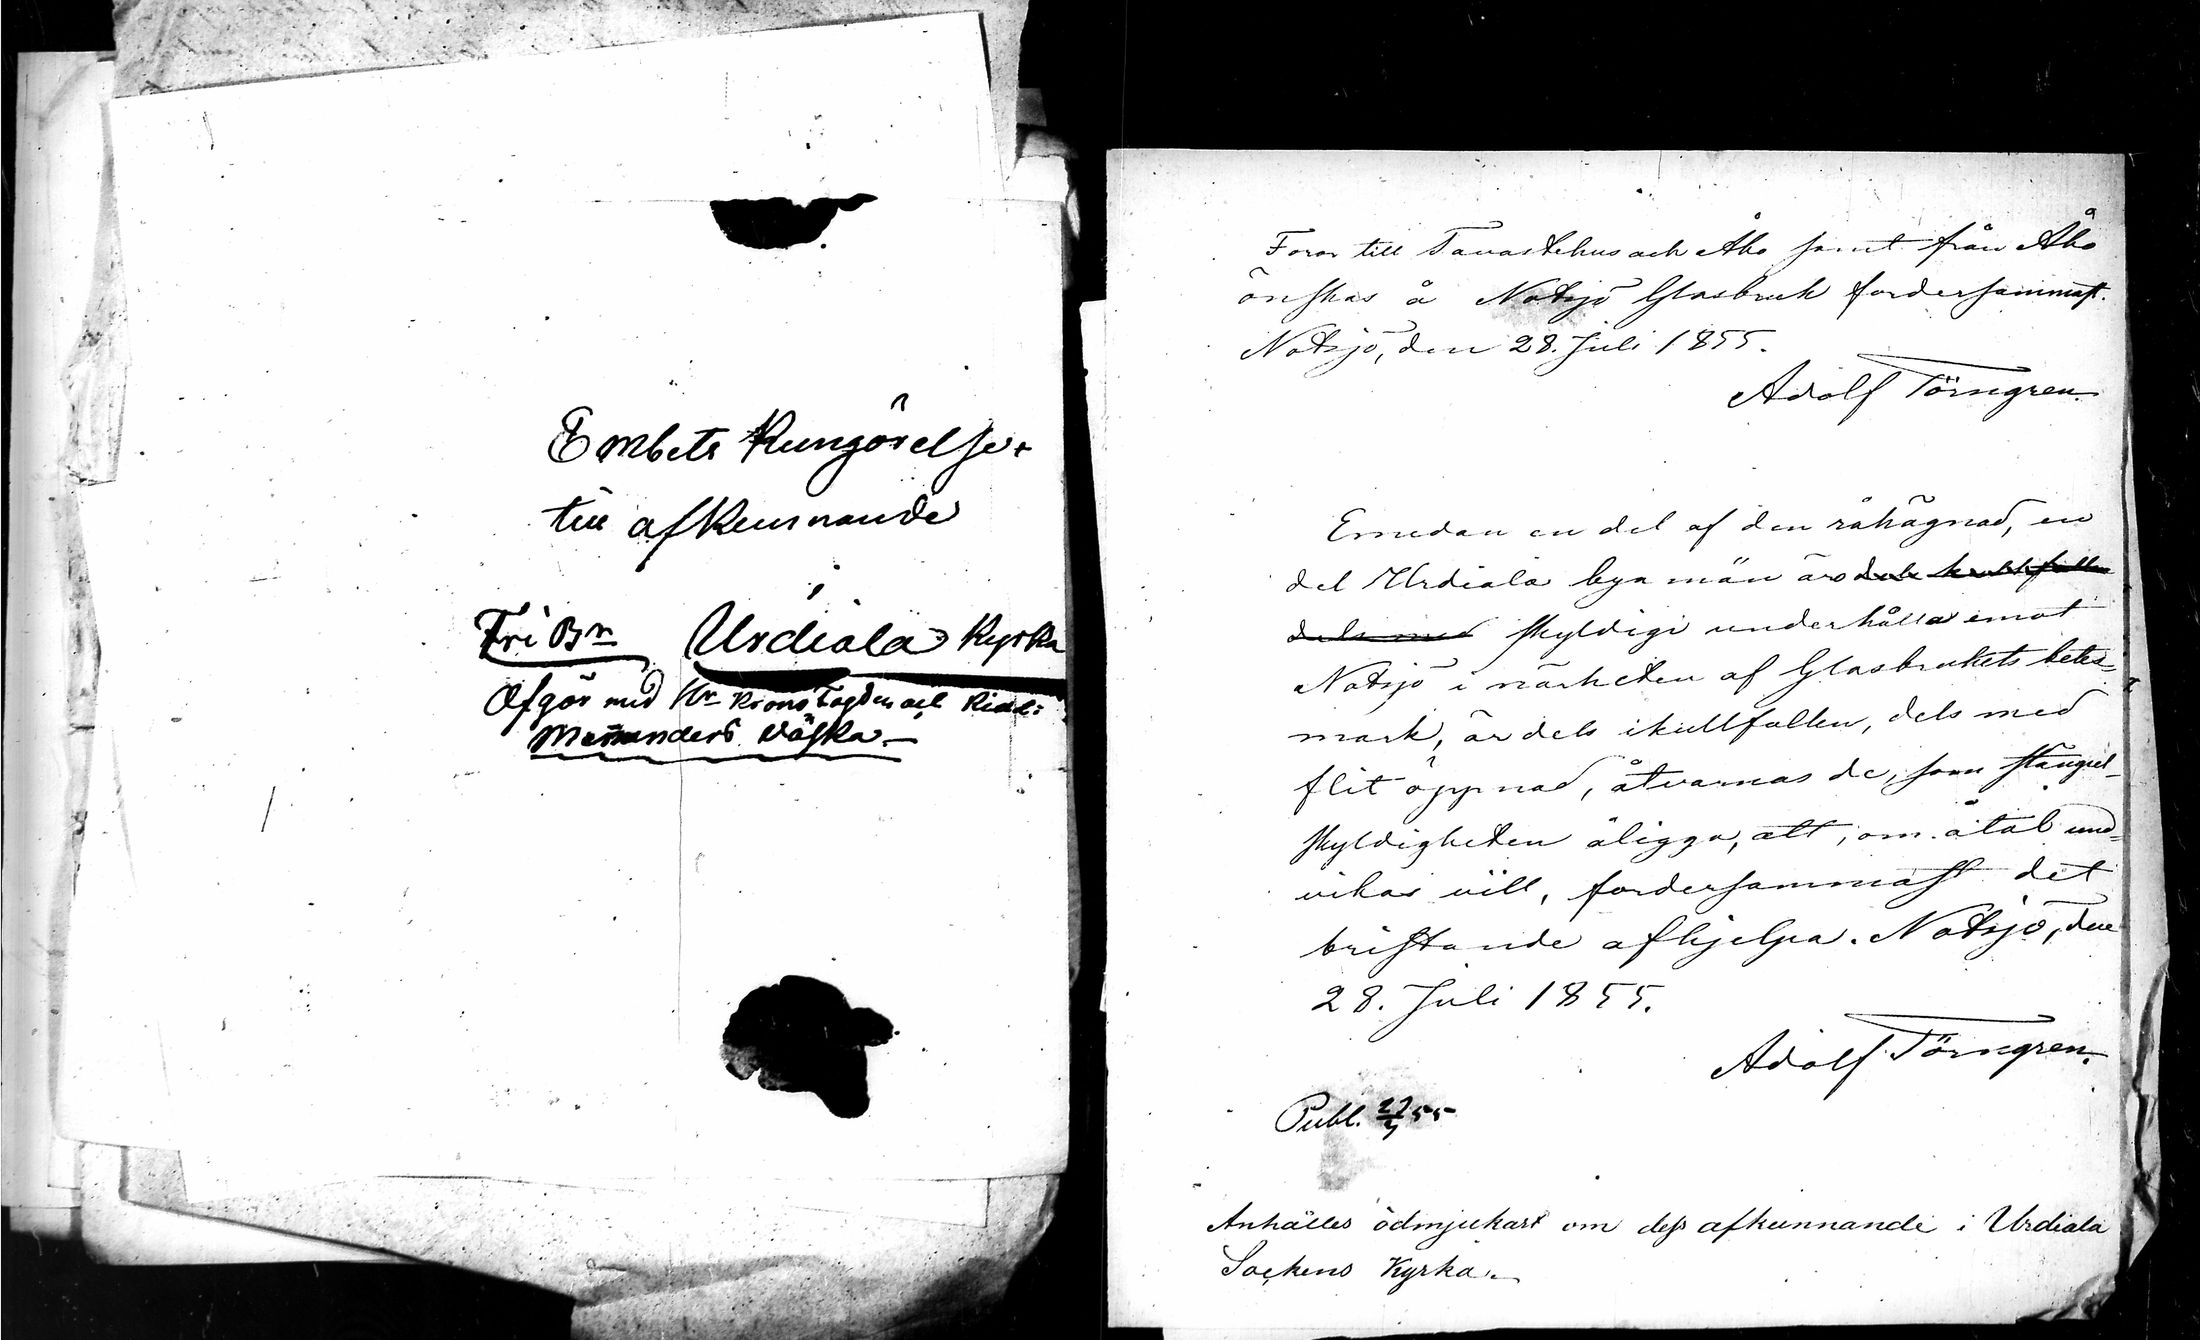 Embets Kungörelser
till afkunnande
i
Fri Br Urdiala Kyrka
Afgår med Hr Krono Fogden och Ridd:
Menanders väska.
Foror till Tavastehus och Åbo samt från Åbo
önskas å Notsjö Glasbruk fordersammast.
Notsjö, den 28. Juli 1855.
Adolf Törngren.
Emedan en del af den råhägnad, en
del Urdiala bya män äro dels kullfallen
dels med skyldige underhålla emot
Notsjö i närheten af Glasbrukets betes-
mark, är dels ikullfallen, dels med
flit öppnad, åtvarnas de, som stängsel-
skyldigheten åligga, att, om åtal und-
vikas vill, fordersammast det
bristande afhjelpa. Notsjö, den
28. Juli 1855.
Adolf Törngren.
Publ. 29/7 55
Anhålles ödmjukast om dess afkunnande i Urdiala
Sockens Kyrka.